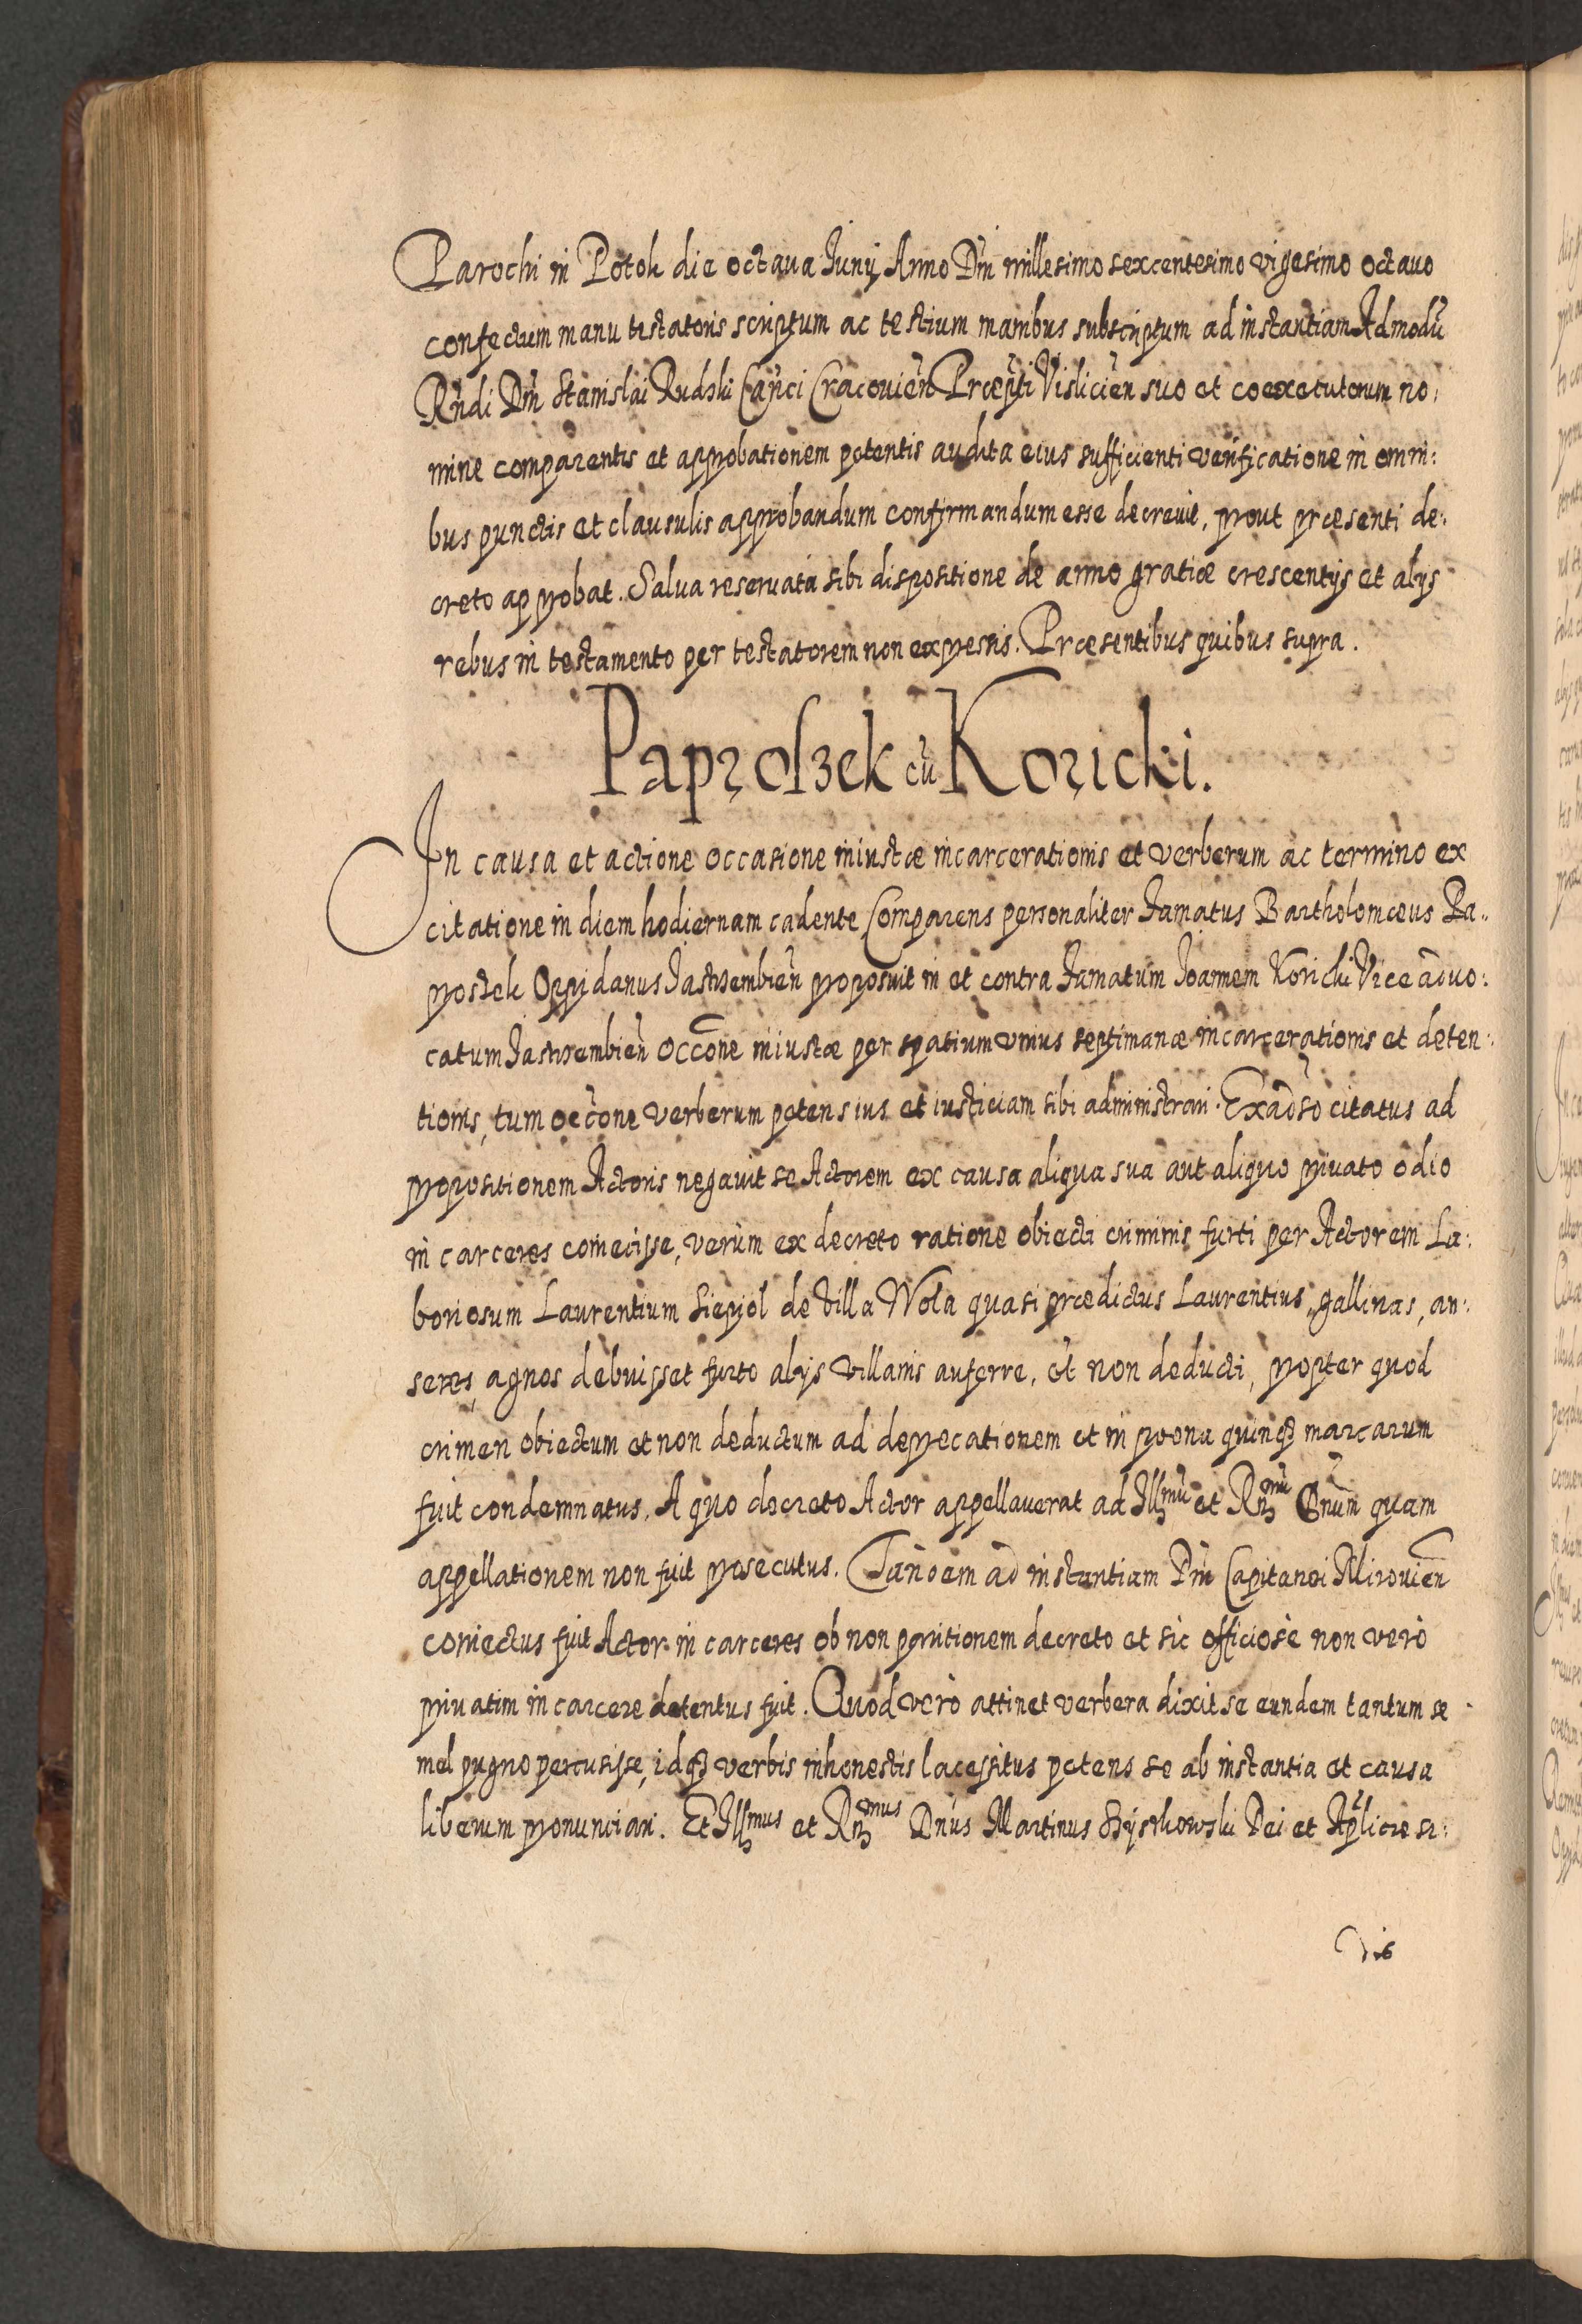 Parochi in Potok die octaua Iunij Anno Dni millesimo sexcentesimo vigesimo octauo
confectum manu testatoris scriptum ac testium manibus subscriptum ad instantiam Admodū
Rndi Dni Stanislai Rudski Canci Cracouien Præpti Vislicien suo et coexecutorum no:
mine comparentis et approbationem petentis audita eius sufficienti verificatione in omni:
bus punctis et clausulis approbandum confirmandum esse decreuit, prout præsenti de:
creto approbat. Salua reseruata sibi dispositione de anno gratiæ crescentijs et alijs
rebus in testamento per testatorem non expressis. Præsentibus quibus supra.
Paproſzek cū Koricki.
In causa et actione occasione iniustæ incarcerationis et verberum ac termino ex
citatione in diem hodiernam cadente, Comparens personaliter famatus Bartholomæus Pa:
prostek Oppidanus Jastrzembien proposuit in et contra famatum Joannem Koricki Vice aduo:
catum Jastrzembien occone iniustæ per spatium vnius septimanæ incarcerationis et deten:
tionis, tum occone verberum petens ius et iusticiam sibi administrari. Exaduso citatus ad
propositionem Actoris negauit se Actorem ex causa aliqua sua aut aliquo priuato odio
in carceres coniecisse, verùm ex decreto ratione obiecti criminis furti per Actorem La:
boriosum Laurentium Siepiol de villa Wola quasi prædictus Laurentius, gallinas, an:
seres, agnos debuisset furto alijs villanis auferre, et non deducti, propter quod
crimen obiectum et non deductum ad deprecationem et in poena quinq3 marcarum
fuit condemnatus. A quo decreto Actor appellauerat ad Illmū et Rnmū Dnum quam
appellationem non fuit prosecutus. Tandem ad instantiam Dni Capitanei Mirouien
coniectus fuit Actor in carceres ob non paritionem decreto et sic officiosè non verò
priuatim in carcere detentus fuit. Quod verò attinet verbera dixit se eundem tantum se
mel pugno percusisse, idq3 verbis inhonestis lacessitus petens se ab instantia et causa
liberum pronunciari. Et Illmus et Rnmus Dnus Martinus Szyszkowski Dei et Aplicæ se: